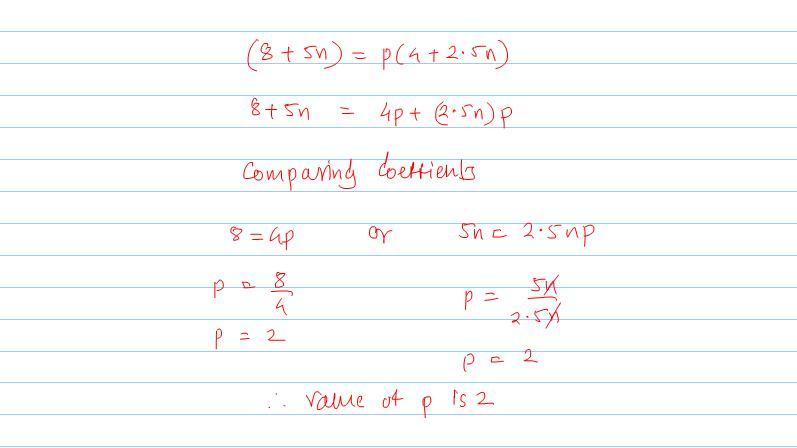 (8 + 5n) = p(4 + 2.5n)
8 + 5n = 4p + (2.5n)p
Comparing Coefficients
8 = 4p or 5n = 2.5np
p = 8/4 p = 5n/2.5n
p = 2
p = 2
∴ value of p is 2